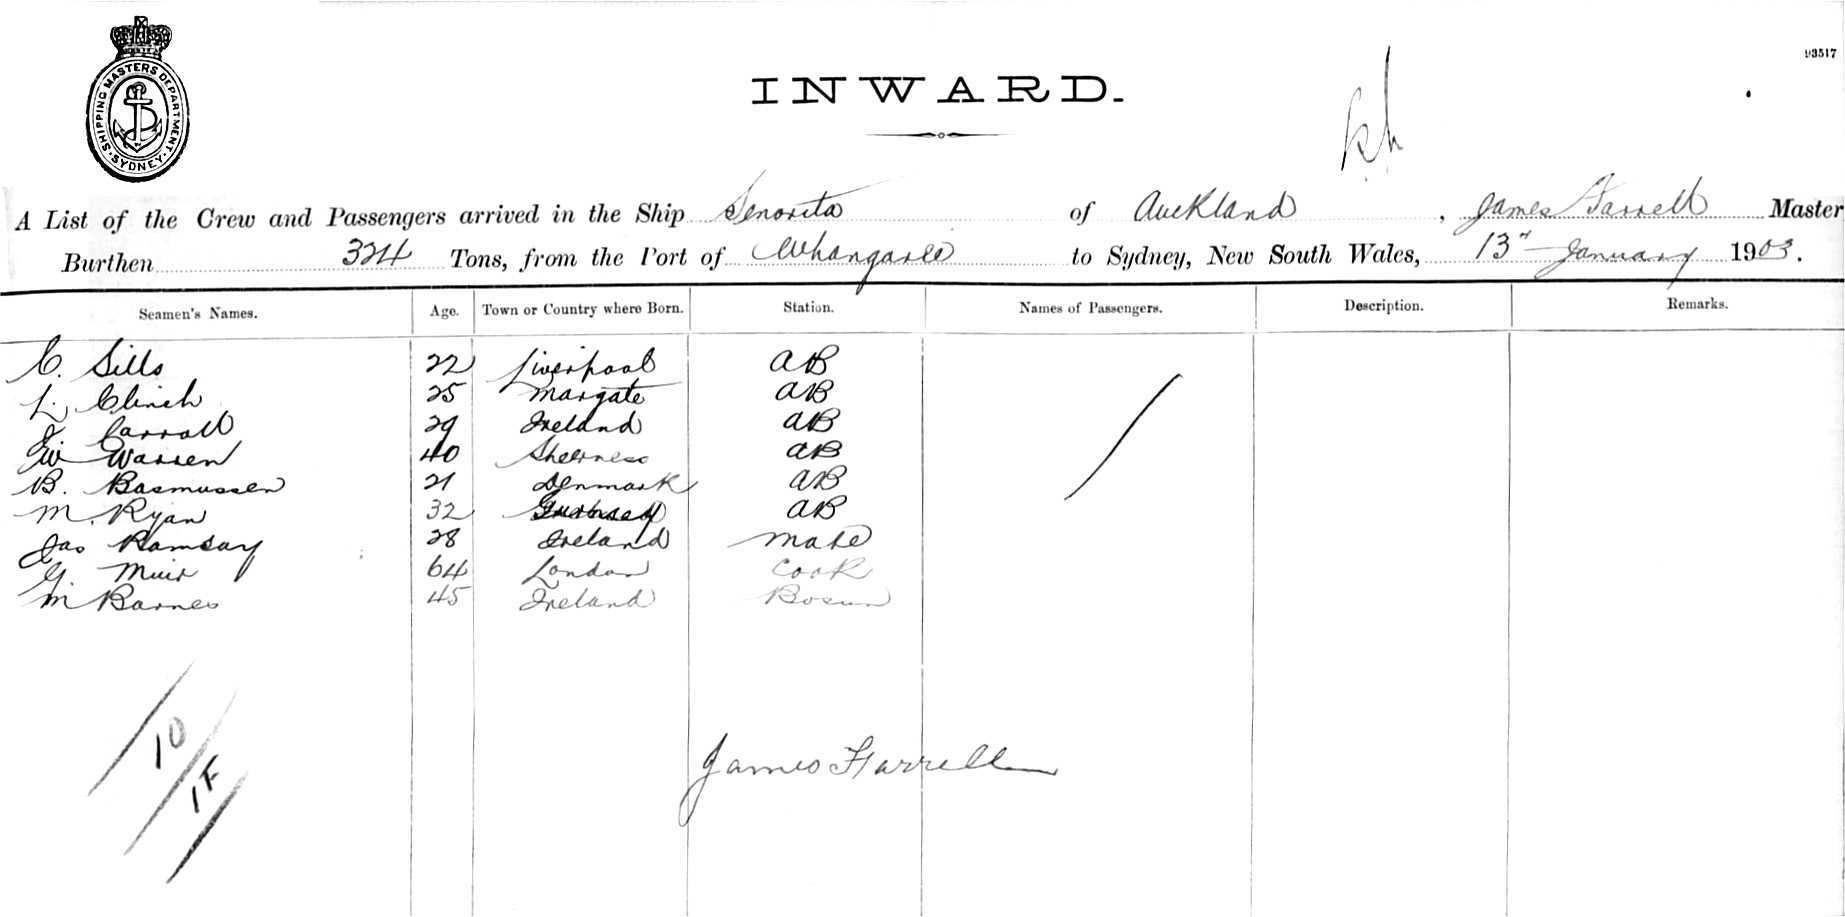 SHIPPING MASTERS DEPARTMENT. SYDNEY.
93517
INWARD.
A List of the Crew and Passengers arrived in the Ship Senorita of Auckland, James Farrell Master
Burthen 324 Tons, from the Port of Whangarei to Sydney, New South Wales, 13th January 1903.
Seamen's Names. Age. Town or Country where Born. Station. Names of Passengers. Description. Remarks.
C. Sills 22 Liverpool AB
L. Clinch 25 Margate AB
Carroll 29 Ireland AB
W Warren 40 Sheerness AB
B. Rasmussen 21 Denmark AB
M. Ryan 32 AB
Jas Ramsay 28 Ireland Mate
G. Muir 64 London Cook
M Barnes 45 Ireland Bosun
10
1F
James Farrell